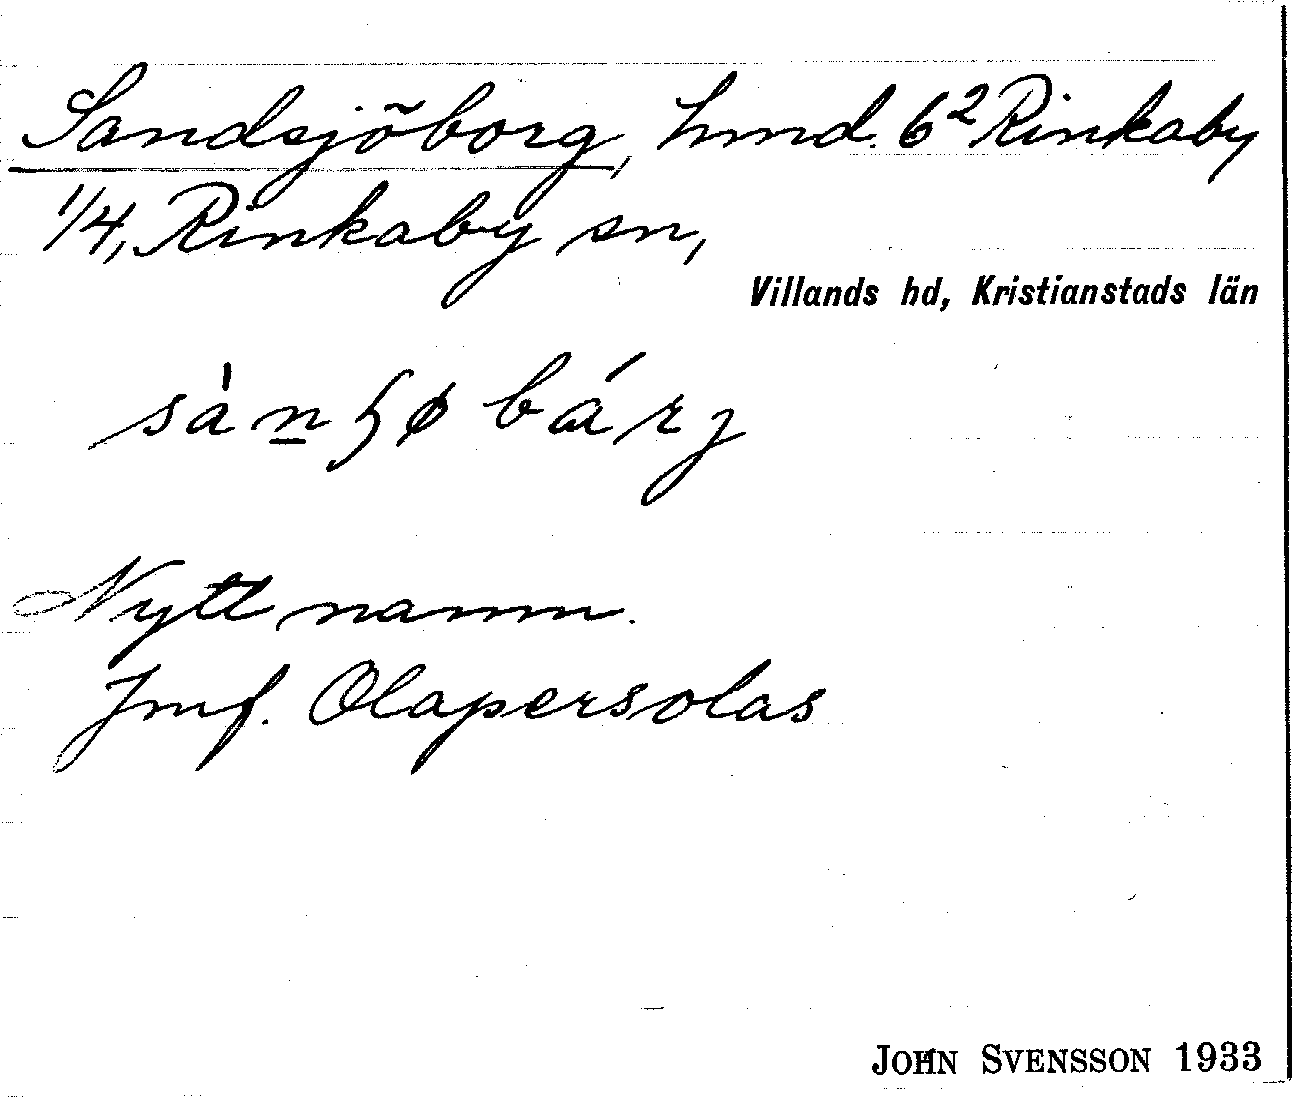 Sandsjöborg, hmd. 6² Rinkaby
1/4, Rinkaby sn,
Villands hd, Kristianstads län
sàn̲ɧø bárj
Nytt namn.
Jmf. Olapersolas
JOHN SVENSSON 1933